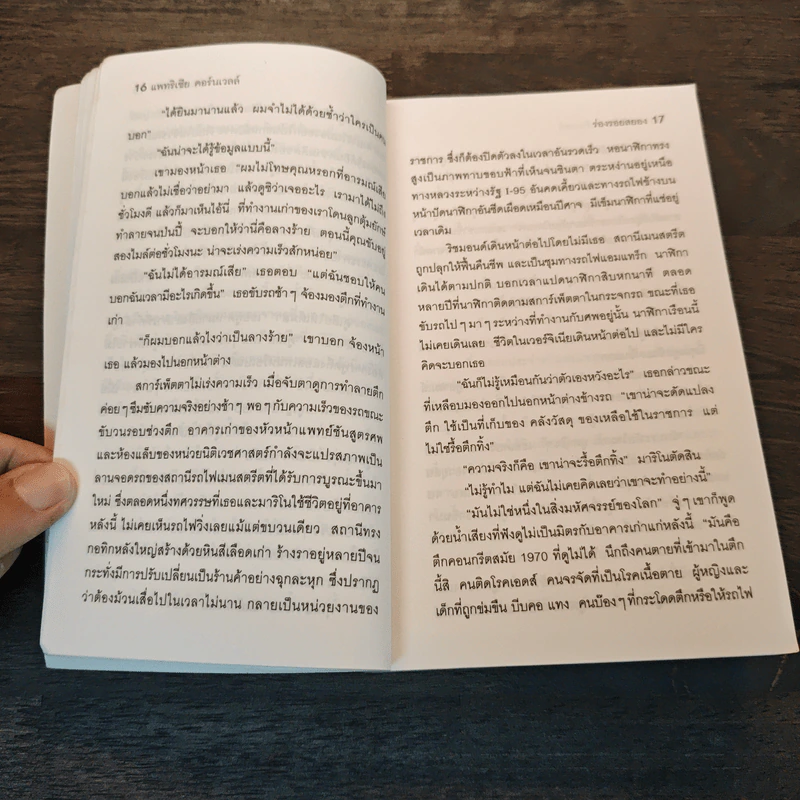 16 แพทริเซีย คอร์นเวลล์
"ได้ยินมานานแล้ว ผมจำไม่ได้ด้วยซ้ำว่าใครเป็นคน
บอก"
"ฉันน่าจะได้รู้ข้อมูลแบบนี้"
เขามองหน้าเธอ "ผมไม่โทษคุณหรอกที่อารมณ์เสีย
บอกแล้วไม่เชื่อว่าอย่ามา แล้วดูซิว่าเจออะไร เรามาได้ไม่ถึง
ชั่วโมงดี แล้วก็มาเห็นไอ้นี่ ที่ทำงานเก่าของเราโดนลูกตุ้มยักษ์
ทำลายจนป่นปี้ จะบอกให้ว่านี่คือลางร้าย ตอนนี้คุณขับอยู่
สองไมล์ต่อชั่วโมงนะ น่าจะเร่งความเร็วสักหน่อย"
"ฉันไม่ได้อารมณ์เสีย" เธอตอบ "แต่ฉันชอบให้คน
บอกฉันเวลามีอะไรเกิดขึ้น" เธอขับรถช้าๆ จ้องมองตึกที่ทำงาน
เก่า
"ก็ผมบอกแล้วไงว่าเป็นลางร้าย" เขาบอก จ้องหน้า
เธอ แล้วมองไปนอกหน้าต่าง
สการ์เพ็ตตาไม่เร่งความเร็ว เมื่อจับตาดูการทำลายตึก
ค่อยๆ ซึมซับความจริงอย่างช้าๆ พอๆ กับความเร็วของรถขณะ
ขับวนรอบช่วงตึก อาคารเก่าของหัวหน้าแพทย์ชันสูตรศพ
และห้องแล็บของหน่วยนิติเวชศาสตร์กำลังจะแปรสภาพเป็น
ลานจอดรถของสถานีรถไฟเมนสตรีตที่ได้รับการบูรณะขึ้นมา
ใหม่ ซึ่งตลอดหนึ่งทศวรรษที่เธอและมาริโนใช้ชีวิตอยู่ที่อาคาร
หลังนี้ ไม่เคยเห็นรถไฟวิ่งเลยแม้แต่ขบวนเดียว สถานีทรง
กอทิกหลังใหญ่สร้างด้วยหินสีเลือดเก่า ร้างราอยู่หลายปีจน
กระทั่งมีการปรับเปลี่ยนเป็นร้านค้าอย่างฉุกละหุก ซึ่งปรากฏ
ว่าต้องม้วนเสื่อไปในเวลาไม่นาน กลายเป็นหน่วยงานของ
ร่องรอยสยอง 17
ราชการ ซึ่งก็ต้องปิดตัวลงในเวลาอันรวดเร็ว หอนาฬิกาทรง
สูงเป็นภาพทาบขอบฟ้าที่เห็นจนชินตา ตระหง่านอยู่เหนือ
ทางหลวงระหว่างรัฐ I-95 อันคดเคี้ยวและทางรถไฟข้างบน
หน้าปัดนาฬิกาอันซีดเผือดเหมือนปีศาจ มีเข็มนาฬิกาที่แช่อยู่
เวลาเดิม
ริชมอนด์เดินหน้าต่อไปโดยไม่มีเธอ สถานีเมนสตรีต
ถูกปลุกให้ฟื้นคืนชีพ และเป็นชุมทางรถไฟแอมแทร็ก นาฬิกา
เดินได้ตามปกติ บอกเวลาแปดนาฬิกาสิบหกนาที ตลอด
หลายปีที่นาฬิกาติดตามสการ์เพ็ตตาในกระจกรถ ขณะที่เธอ
ขับรถไปๆ มาๆ ระหว่างที่ทำงานกับศพอยู่นั้น นาฬิกาเรือนนี้
ไม่เคยเดินเลย ชีวิตในเวอร์จิเนียเดินหน้าต่อไป และไม่มีใคร
คิดจะบอกเธอ
"ฉันก็ไม่รู้เหมือนกันว่าตัวเองหวังอะไร" เธอกล่าวขณะ
ที่เหลือบมองออกไปนอกหน้าต่างข้างรถ "เขาน่าจะดัดแปลง
ตึก ใช้เป็นที่เก็บของ คลังวัสดุ ของเหลือใช้ในราชการ แต่
ไม่ใช่รื้อตึกทิ้ง"
"ความจริงก็คือ เขาน่าจะรื้อตึกทิ้ง" มาริโนตัดสิน
"ไม่รู้ทำไม แต่ฉันไม่เคยคิดเลยว่าเขาจะทำอย่างนี้"
"มันไม่ใช่หนึ่งในสิ่งมหัศจรรย์ของโลก" จู่ๆ เขาก็พูด
ด้วยน้ำเสียงที่ฟังดูไม่เป็นมิตรกับอาคารเก่าแก่หลังนี้ "มันคือ
ตึกคอนกรีตสมัย 1970 ที่ดูไม่ได้ นึกถึงคนตายที่เข้ามาในตึก
นี้สิ คนติดโรคเอดส์ คนจรจัดที่เป็นโรคเนื้อตาย ผู้หญิงและ
เด็กที่ถูกข่มขืน บีบคอ แทง คนบ๊องๆ ที่กระโดดตึกหรือให้รถไฟ